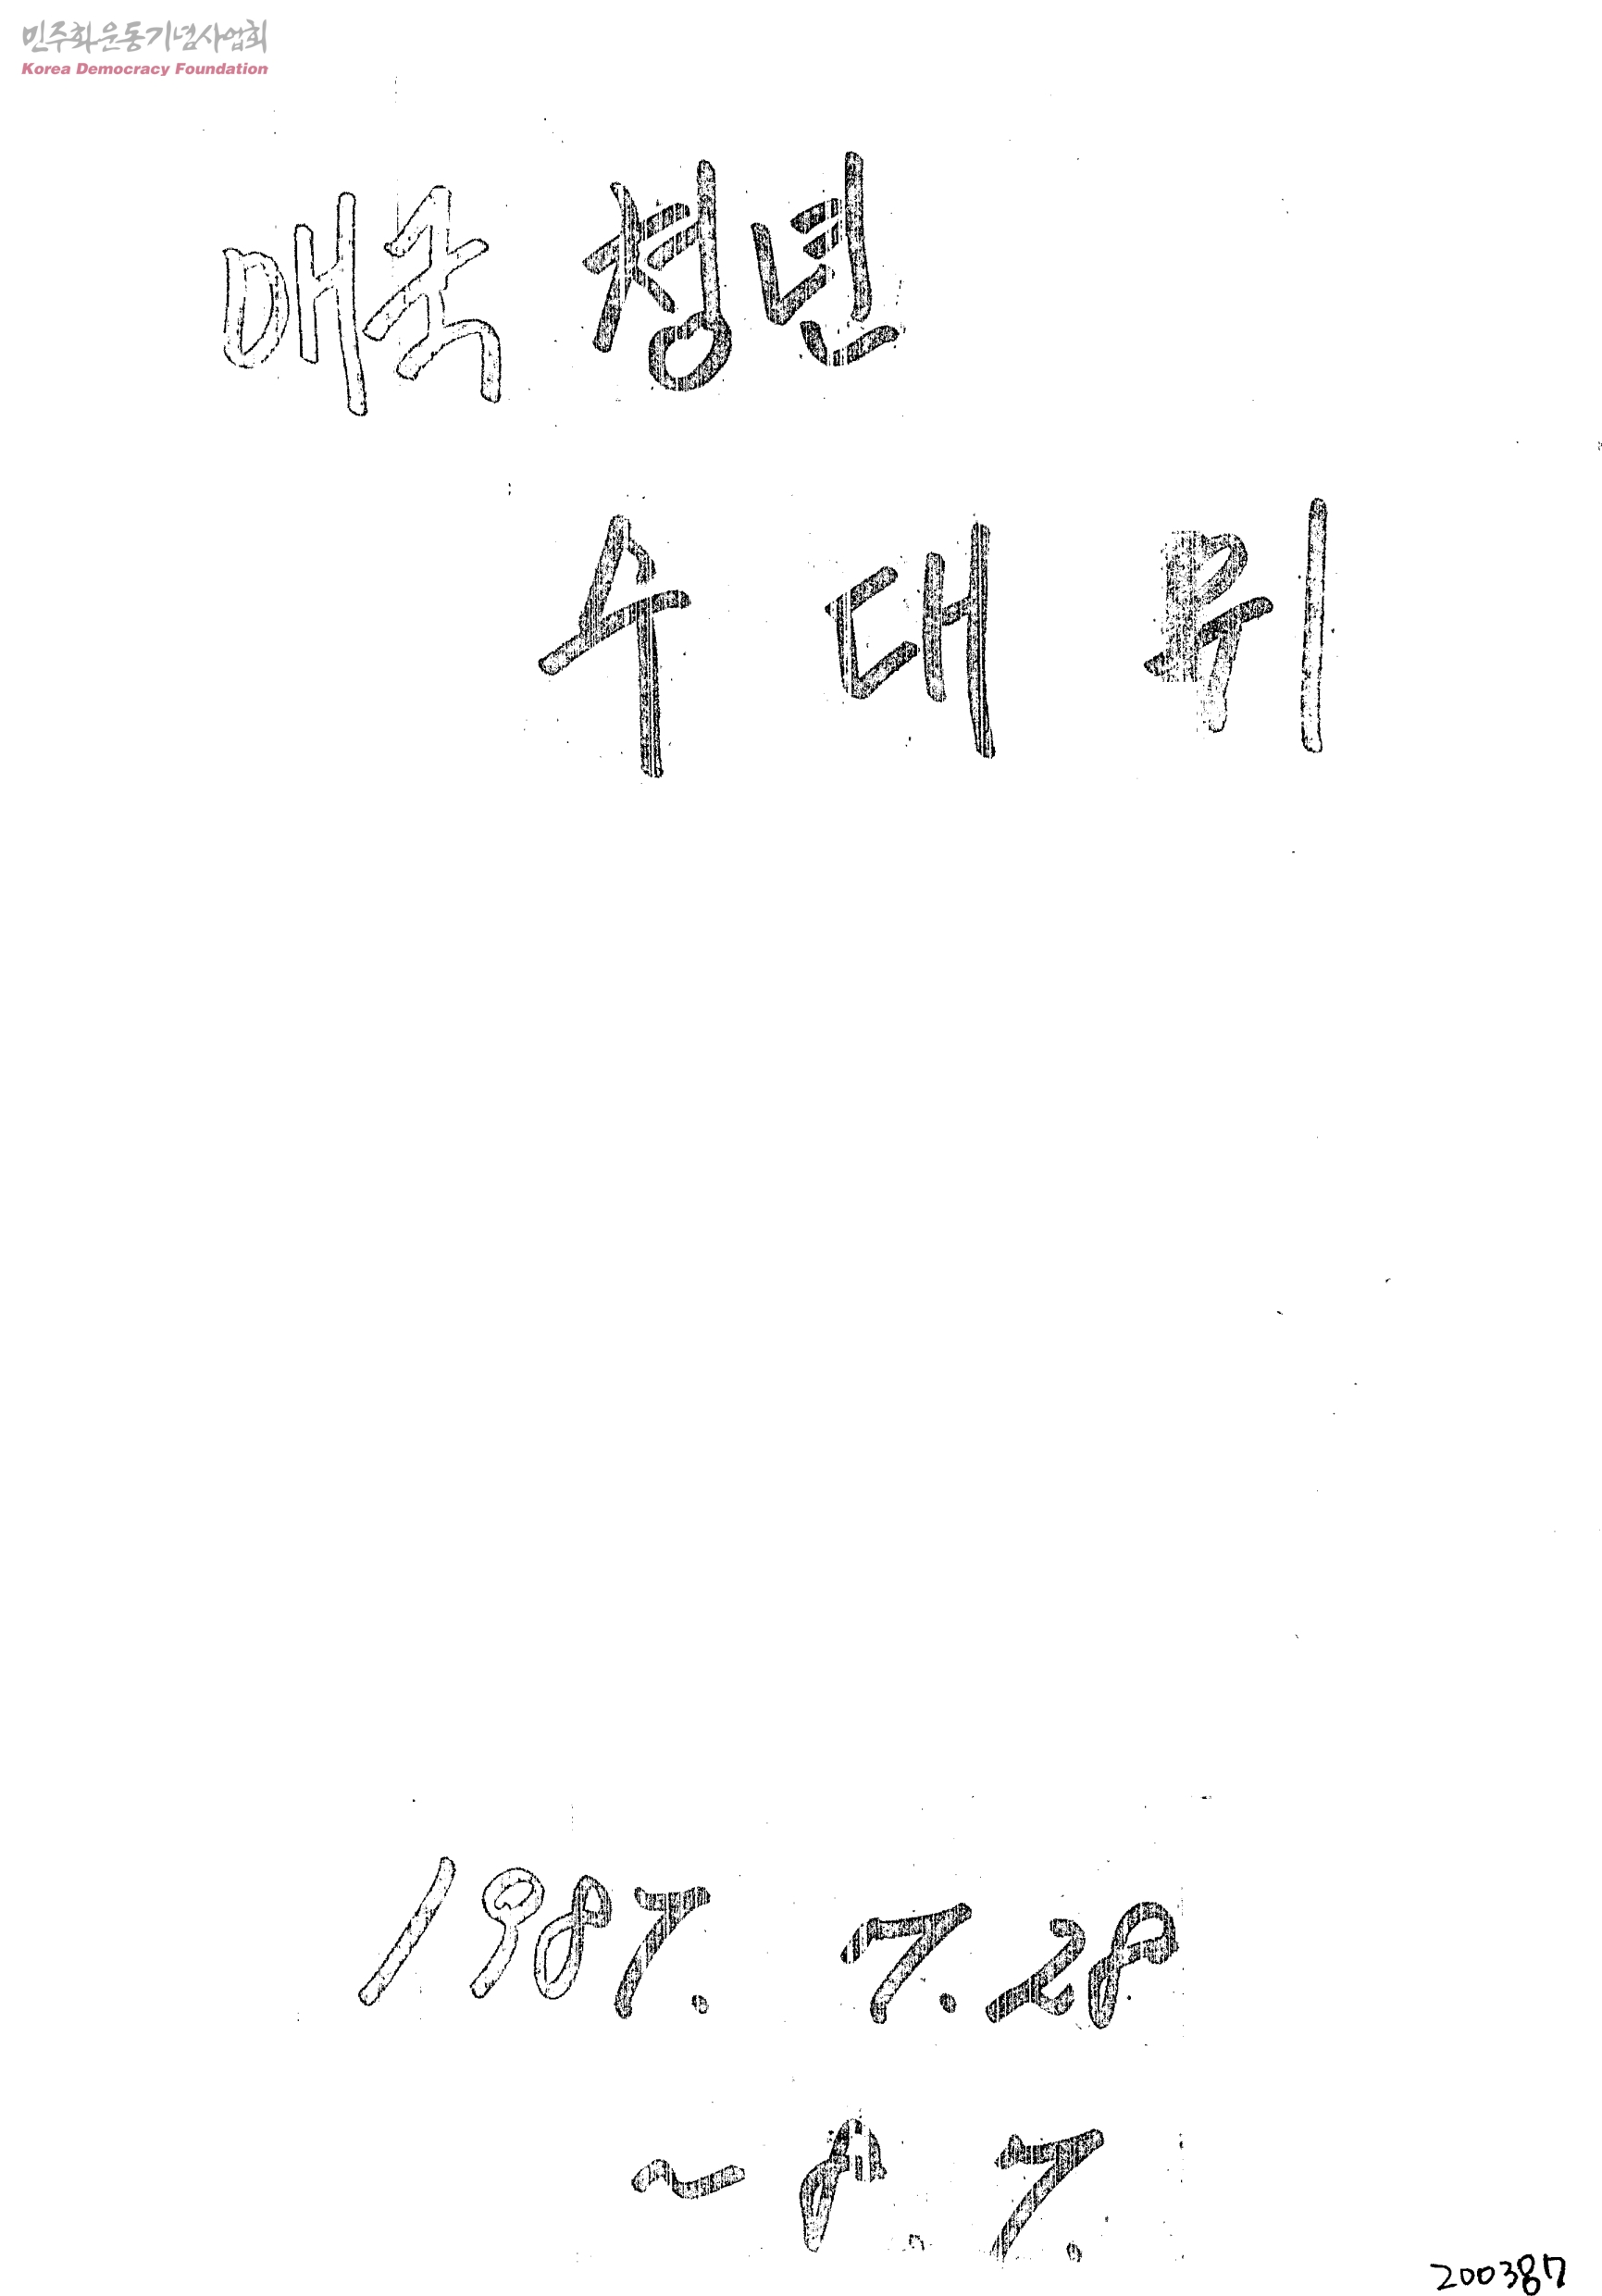 민주화운동기념사업회
Korea Democracy Foundation
애국 청년
수 대 위
1987. 7. 28
~ 8. 7.
200387